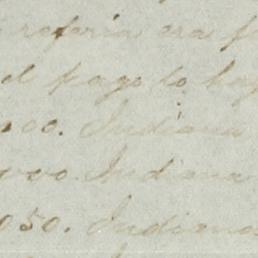 refaria era
el pago lo hag
000. Indiana
000. Indiana
050. Indiana